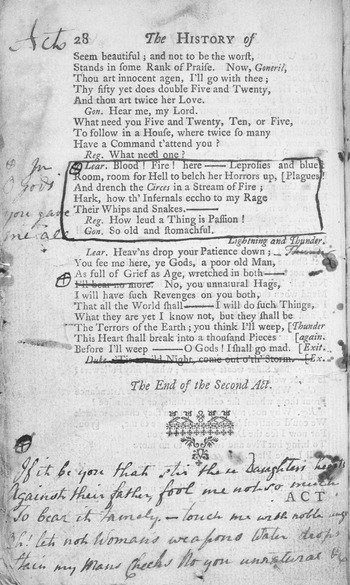 Act 28 The HISTORY of
Seem beautiful; and not to be the worſt,
Stands in ſome Rank of Praiſe. Now, Goneril,
Thou art innocent agen, I'll go with thee;
Thy fifty yet does double Five and Twenty,
And thou art twice her Love.
Gon. Hear me, my Lord.
What need you Five and Twenty, Ten, or Five,
To follow in a Houſe, where twice ſo many
Have a Command t'attend you?
Reg. What need one?
Lear. Blood! Fire! here—— Leproſies and blueſt
Room, room for Hell to belch her Horrors up, [Plagues!
And drench the Circes in a Stream of Fire;
Hark, how th' Infernals eccho to my Rage
Their Whips and Snakes.——
Reg. How leud a Thing is Paſſion!
Gon. So old and ſtomachful.
Lightning and Thunder.
Lear. Heav'ns drop your Patience down;
You ſee me here, ye Gods, a poor old Man,
As full of Grief as Age, wretched in both——
I'll bear no more: No, you unnatural Hags,
I will have ſuch Revenges on you both,
That all the World ſhall—— I will do ſuch Things,
What they are yet I know not, but they ſhall be
The Terrors of the Earth; you think I'll weep, [Thunder
This Heart ſhall break into a thouſand Pieces [again.
Before I'll weep —— O Gods! I ſhall go mad. [Exit.
Duke. 'Tis a wild Night, come out o'th' Storm. [Ex.
The End of the Second Act.
ACT
you gave
me all
If it be you that stir these Daughters hearts
Against their father, fool me not so much
To bear it tamely. — touch me with noble
Oh! let not Womans weapons Water drops
stain my Mans Cheeks No you unnatural